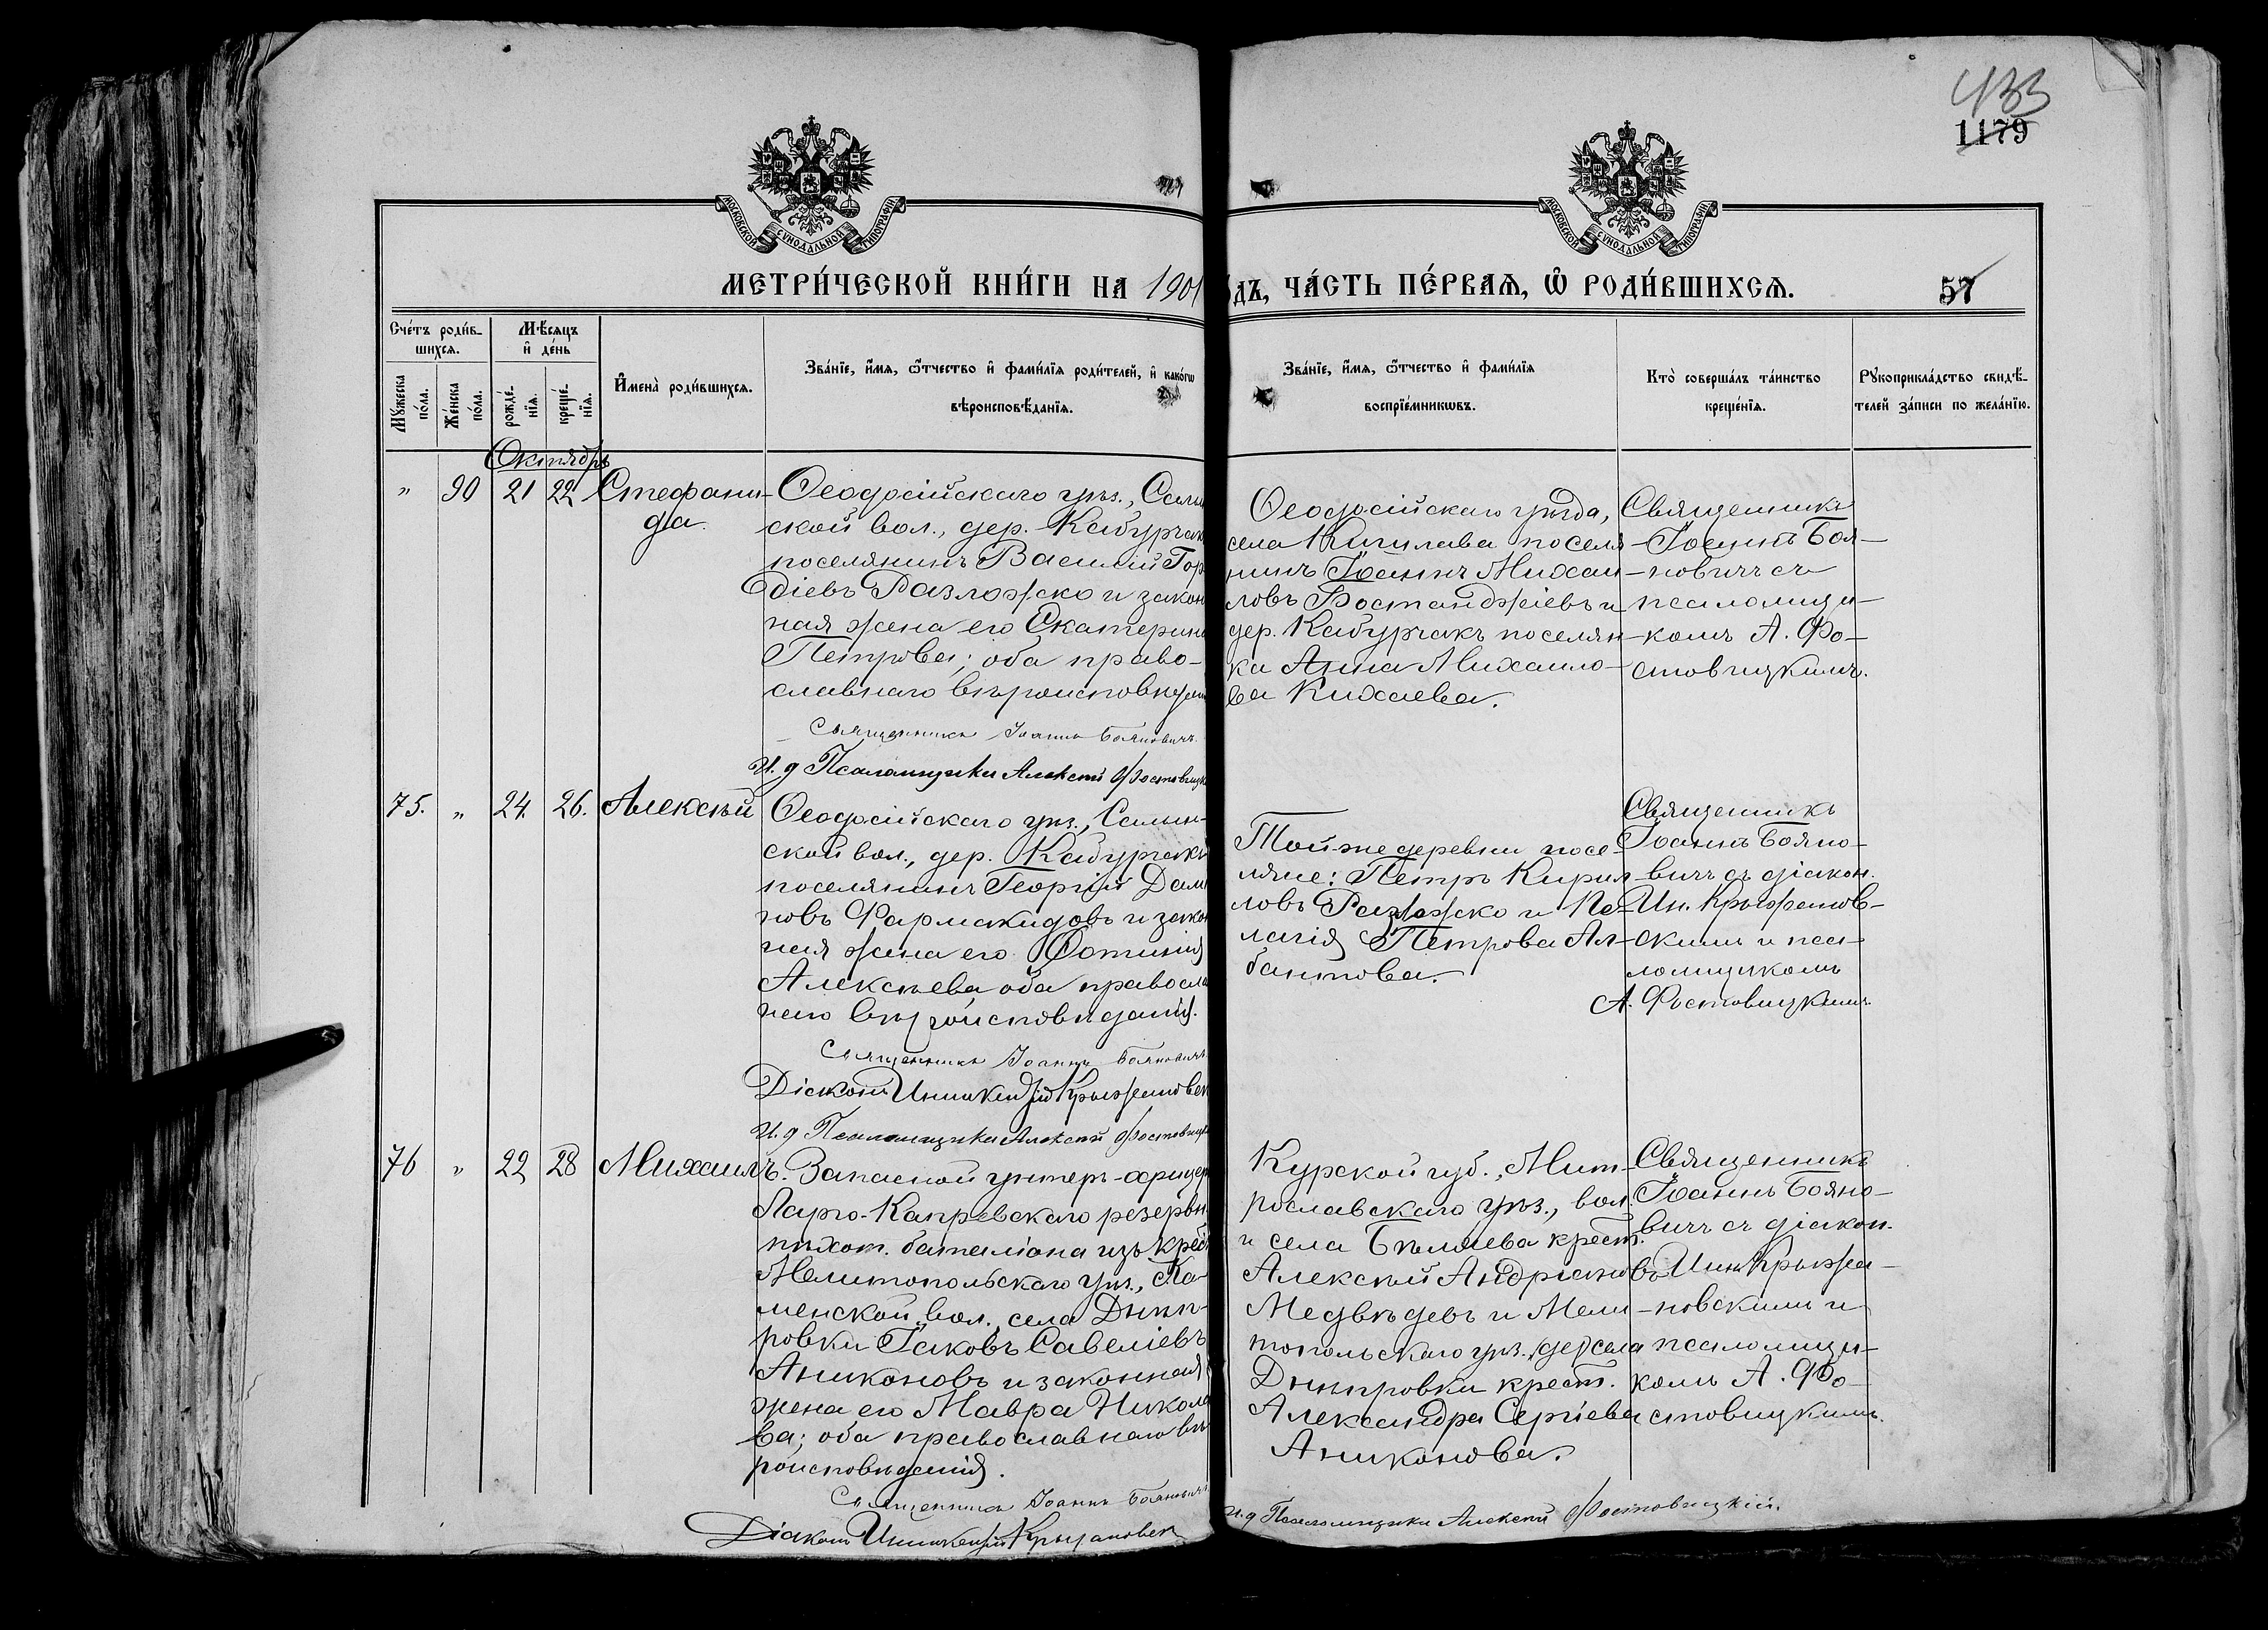 433
1179
МОСКОВСКОЙ СУНОДАЛЬНОЙ ТИПОГРАФІИ
МОСКОВСКОЙ СУНОДАЛЬНОЙ ТИПОГРАФІИ
МЕТРИ́ЧЕСКОЙ КНИ́ГИ НА 1901
ДЪ, ЧА́СТЬ ПЕ́РВАѦ, Ѡ РОДИ́ВШИХСѦ.
57
Сче́тъ роди́в-
шихсѧ.
Мѣ́сяцъ
и де́нь
Мꙋ́жеска
по́ла.
Же́нска
по́ла.
рожде́-
нїѧ.
креще́-
нїѧ.
Имена̀ роди́вшихсѧ.
Зва́нїе, и́мѧ, ѻ́тчество и фами́лїѧ роди́телей, и како́гѡ
вѣроисповѣ́данїѧ.
Зва́нїе, и́мѧ, ѻ́тчество и фами́лїѧ
воспрїе́мникѡвъ.
Кто̀ соверша́лъ та́инство
креще́нїѧ.
Рꙋкоприкла́дство свидѣ́-
телей за́писи по жела́нїю.
Октябрь
" 90 21 22 Стефани-
да.
Ѳеодосійскаго уѣз., Салы
ской вол., дер. Кабурчак
поселянинъ Василій Гор
діевъ Разложко и закон
ная жена его Екатерина
Петрова; оба право-
славнаго вѣроисповѣдан
Священникъ Іоаннъ Бояновичъ.
И. д Псаломщика Алексѣй Фостовицк
Ѳеодосійскаго уѣзда,
села Кишлава поселя-
нинъ Іоаннъ Михаи-
ловъ Бостанджіевъ и
дер. Кабурчакъ поселян-
ка Анна Михаило-
ва Кихаева.
Священникъ
Іоаннъ Боя-
новичъ съ
псаломщи-
комъ А. Фо-
стовицкимъ.
75. " 24. 26. Алексѣй
Ѳеодосійскаго уѣз., Салын-
ской вол., дер. Кабурчакъ
поселянинъ Георгій Дамі
новъ Фармакидовъ и закон
ная жена его Фотинія
Алексѣева оба правосла
наго вѣроисповѣданія.
Священникъ Іоаннъ Бояновичъ.
Діаконъ Иннокентій Крыжановск
И. д Псаломщика Алексѣй Фостовицк
Той-же деревни посе-
ляне: Петръ Кирил-
ловъ Разложко и Пе-
лагія Петрова Ал-
бантова.
Священникъ
Іоаннъ Бояно-
вичъ съ діакон.
Ин. Крыжанов-
скимъ и пса-
ломщикомъ
А. Фостовицкимъ.
76 " 22 28 Михаилъ.
Запасной унтеръ-офицер
Ларго-Кагульскаго резервн
пѣхот. баталіона изъ крест
Мелитопольскаго уѣз., Ка-
менской вол., села Днѣп-
ровки Іаковъ Савеліевъ
Аникановъ и законная
жена его Мавра Никола
ва; оба православнаго вѣ
роисповѣданія.
Священникъ Іоаннъ Бояновичъ
Діаконъ Иннокентій Крыжановск
Курской губ., Мит-
рославскаго уѣз., вол.
и села Бѣляева крест.
Алексѣй Андріановъ
Медвѣдевъ и Мели-
топольскаго уѣз. (де) села
Днѣпровки крест.
Александра Сергіева
Аниканова.
Священникъ
Іоаннъ Бояно-
вичъ съ діакон.
Инн. Крыжа-
новскимъ и
псаломщи-
комъ А. Фо-
стовицкимъ.
И. д Псаломщика Алексѣй Фостовицкій.